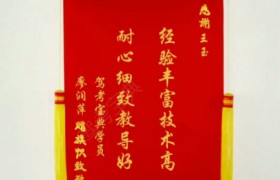 感謝王玉
经验丰富技术高
耐心细致教导好
驾考宝典学员
廖润萍